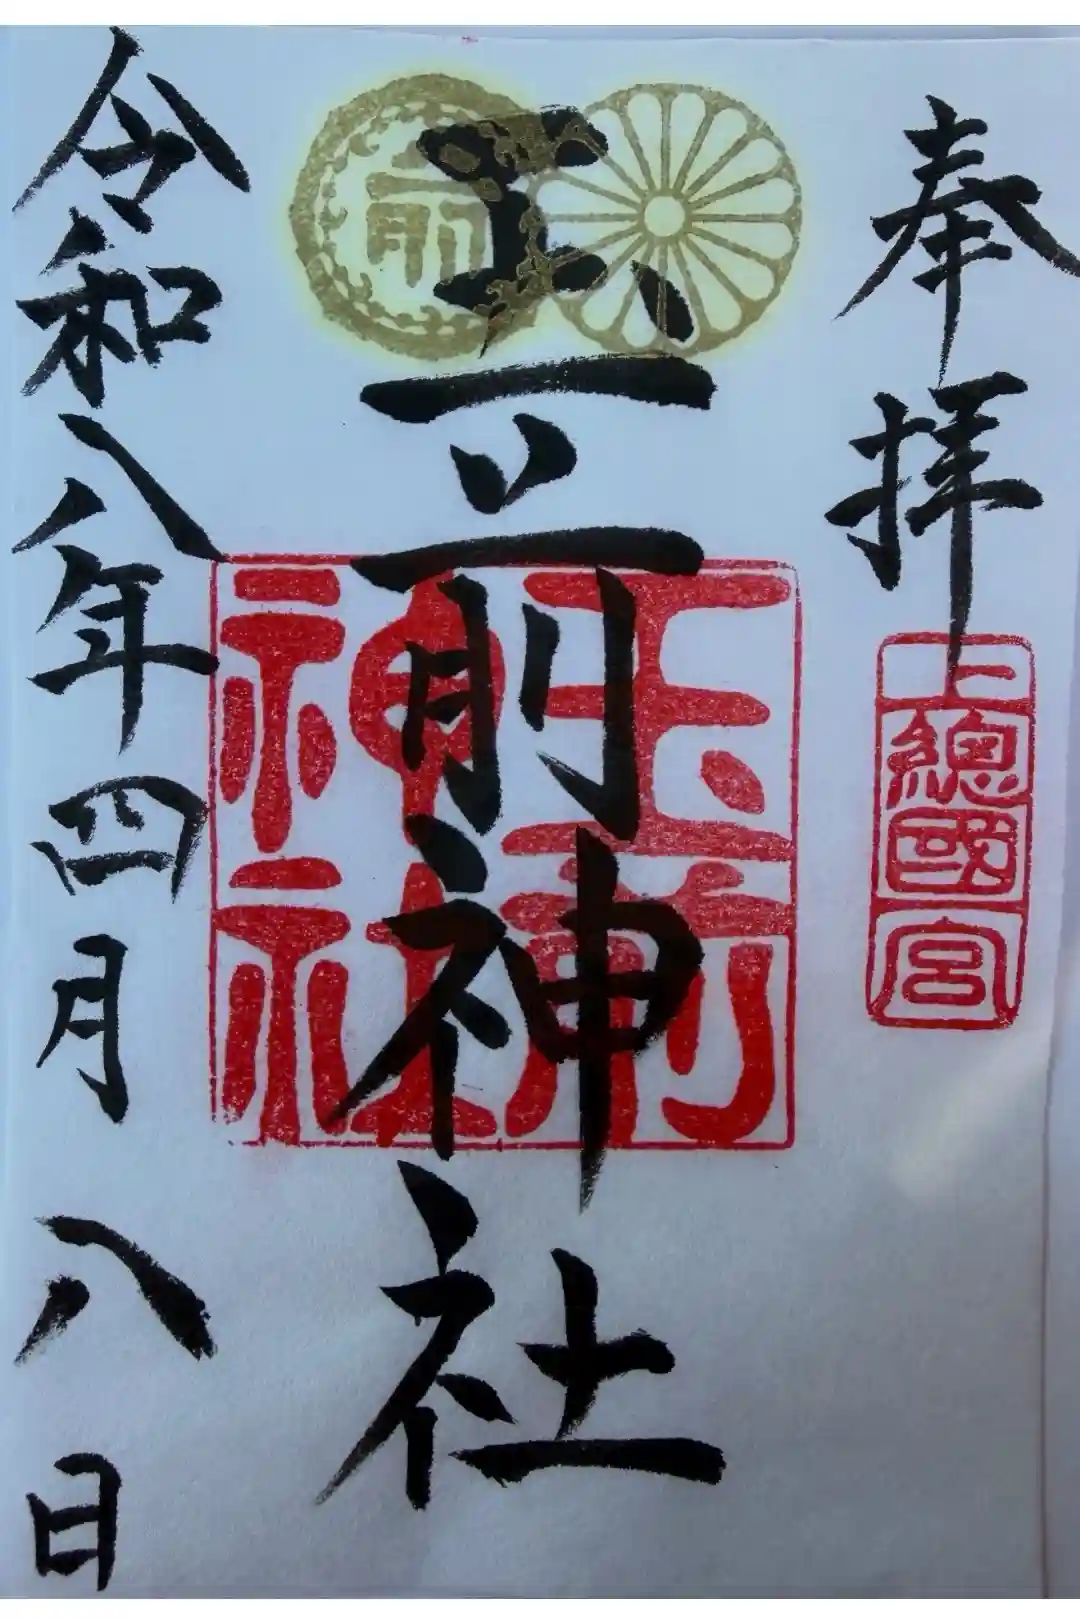 奉拝
上總國一宮
玉前神社
玉前神社
前
令和八年四月八日